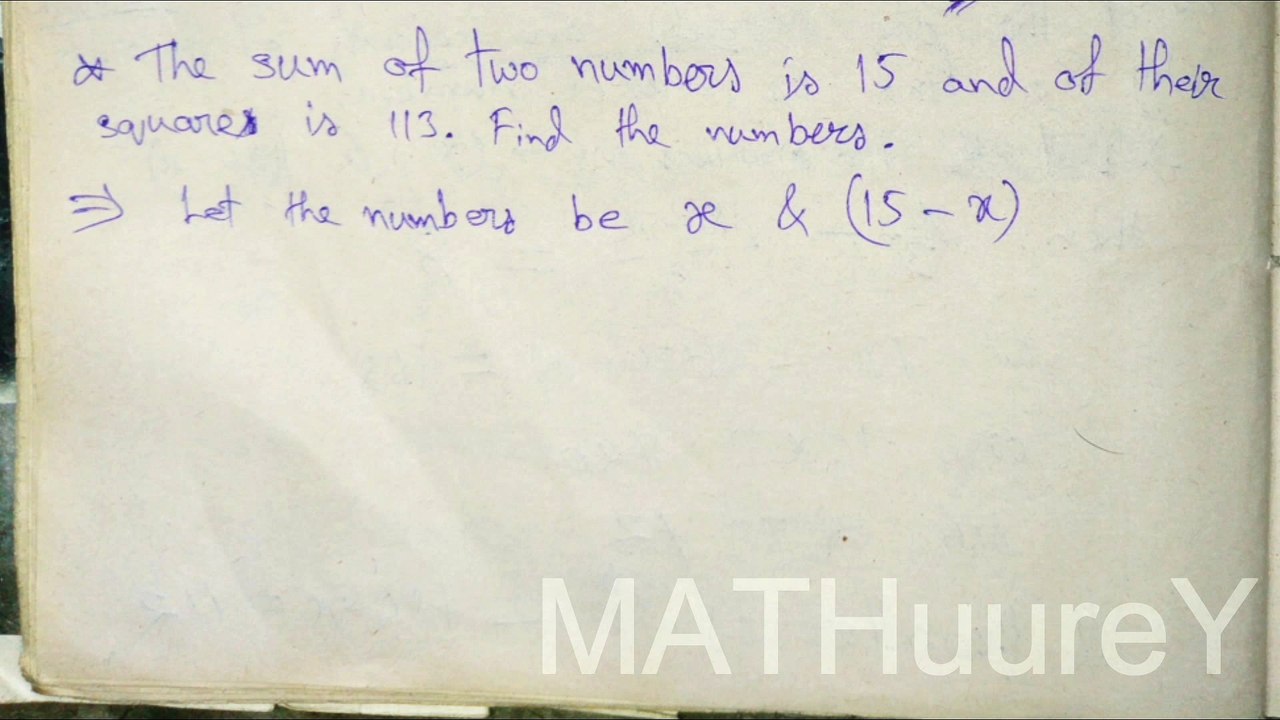 * The sum of two numbers is 15 and of their
squares is 113. Find the numbers.
⇒ Let the numbers be x & (15 - x)
MATHuureY